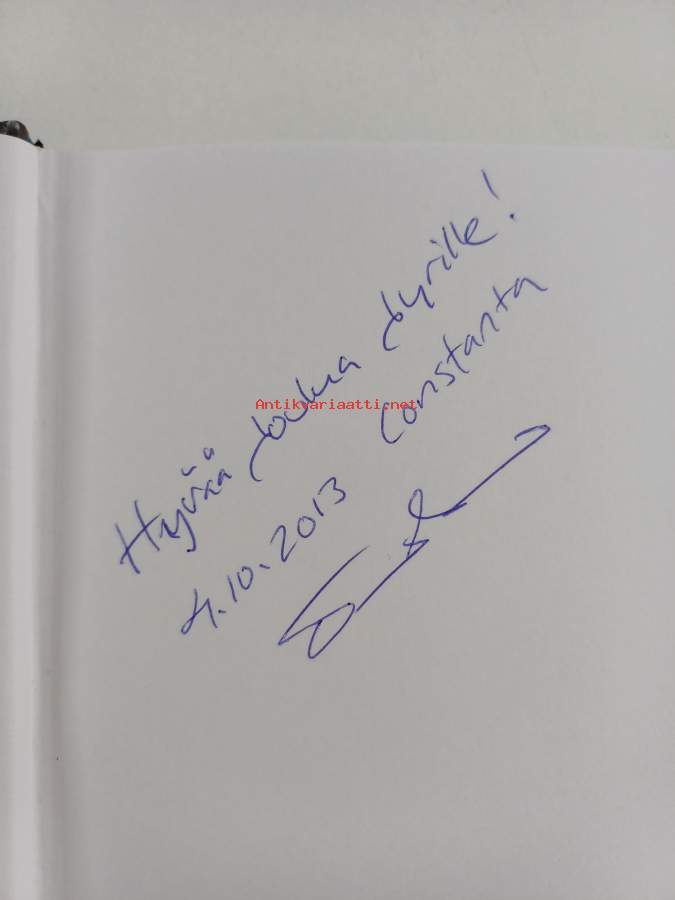 Hyvää Joulua Jyrille!
Antikvariaatti.net
4.10.2013 Constanta